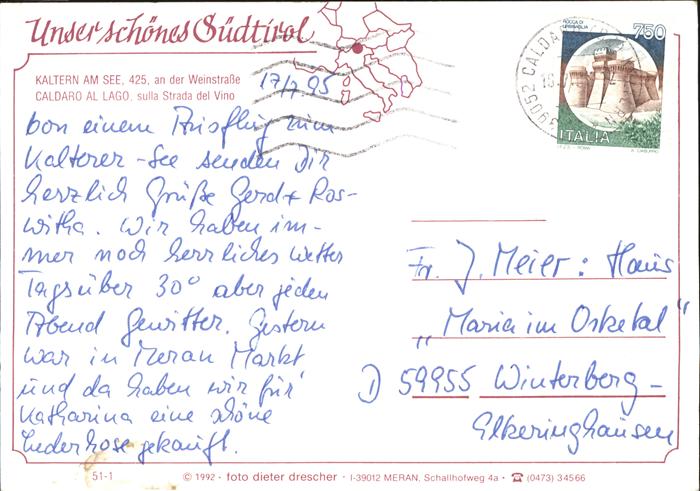 Unser schönes Südtirol
KALTERN AM SEE, 425, an der Weinstraße
CALDARO AL LAGO, sulla Strada del Vino
17/7.95
von einem Ausflug zum
Kalterer-See senden Dir
herzlich Grüße Gerd + Ros-
witha. Wir haben im-
mer noch herrliches Wetter
Tagsüber 30° aber jeden
Abend Gewitter. Gestern
war in Meran Markt
und da haben wir für
Katharina eine schöne
Lederhose gekauft.
ROCCA DI
URBISAGLIA
750
ITALIA
39052 CALDA
Fr. J. Meier: Haus
„Maria im Osketal"
D 59955 Winterberg-
Elkeringhausen
51-1
© 1992 - foto dieter drescher - I-39012 MERAN, Schallhofweg 4a - ☎ (0473) 34566